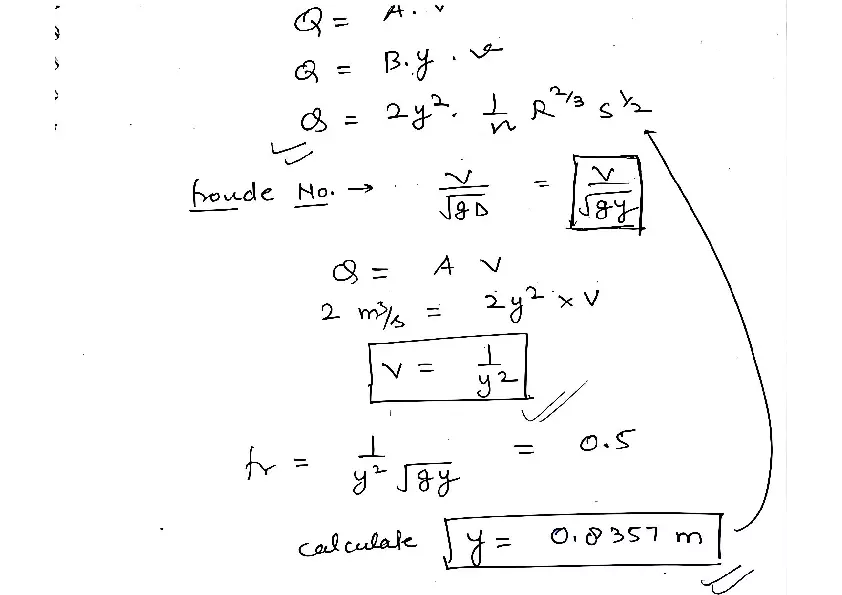 Q = A . v
Q = B.y . v
Q = 2y². 1/n R^2/3 S^1/2
froude No. → V/√gD = V/√gy
Q = A V
2 m³/s = 2y² × V
V = 1/y²
fr = 1/y²√gy = 0.5
calculate y = 0.8357 m